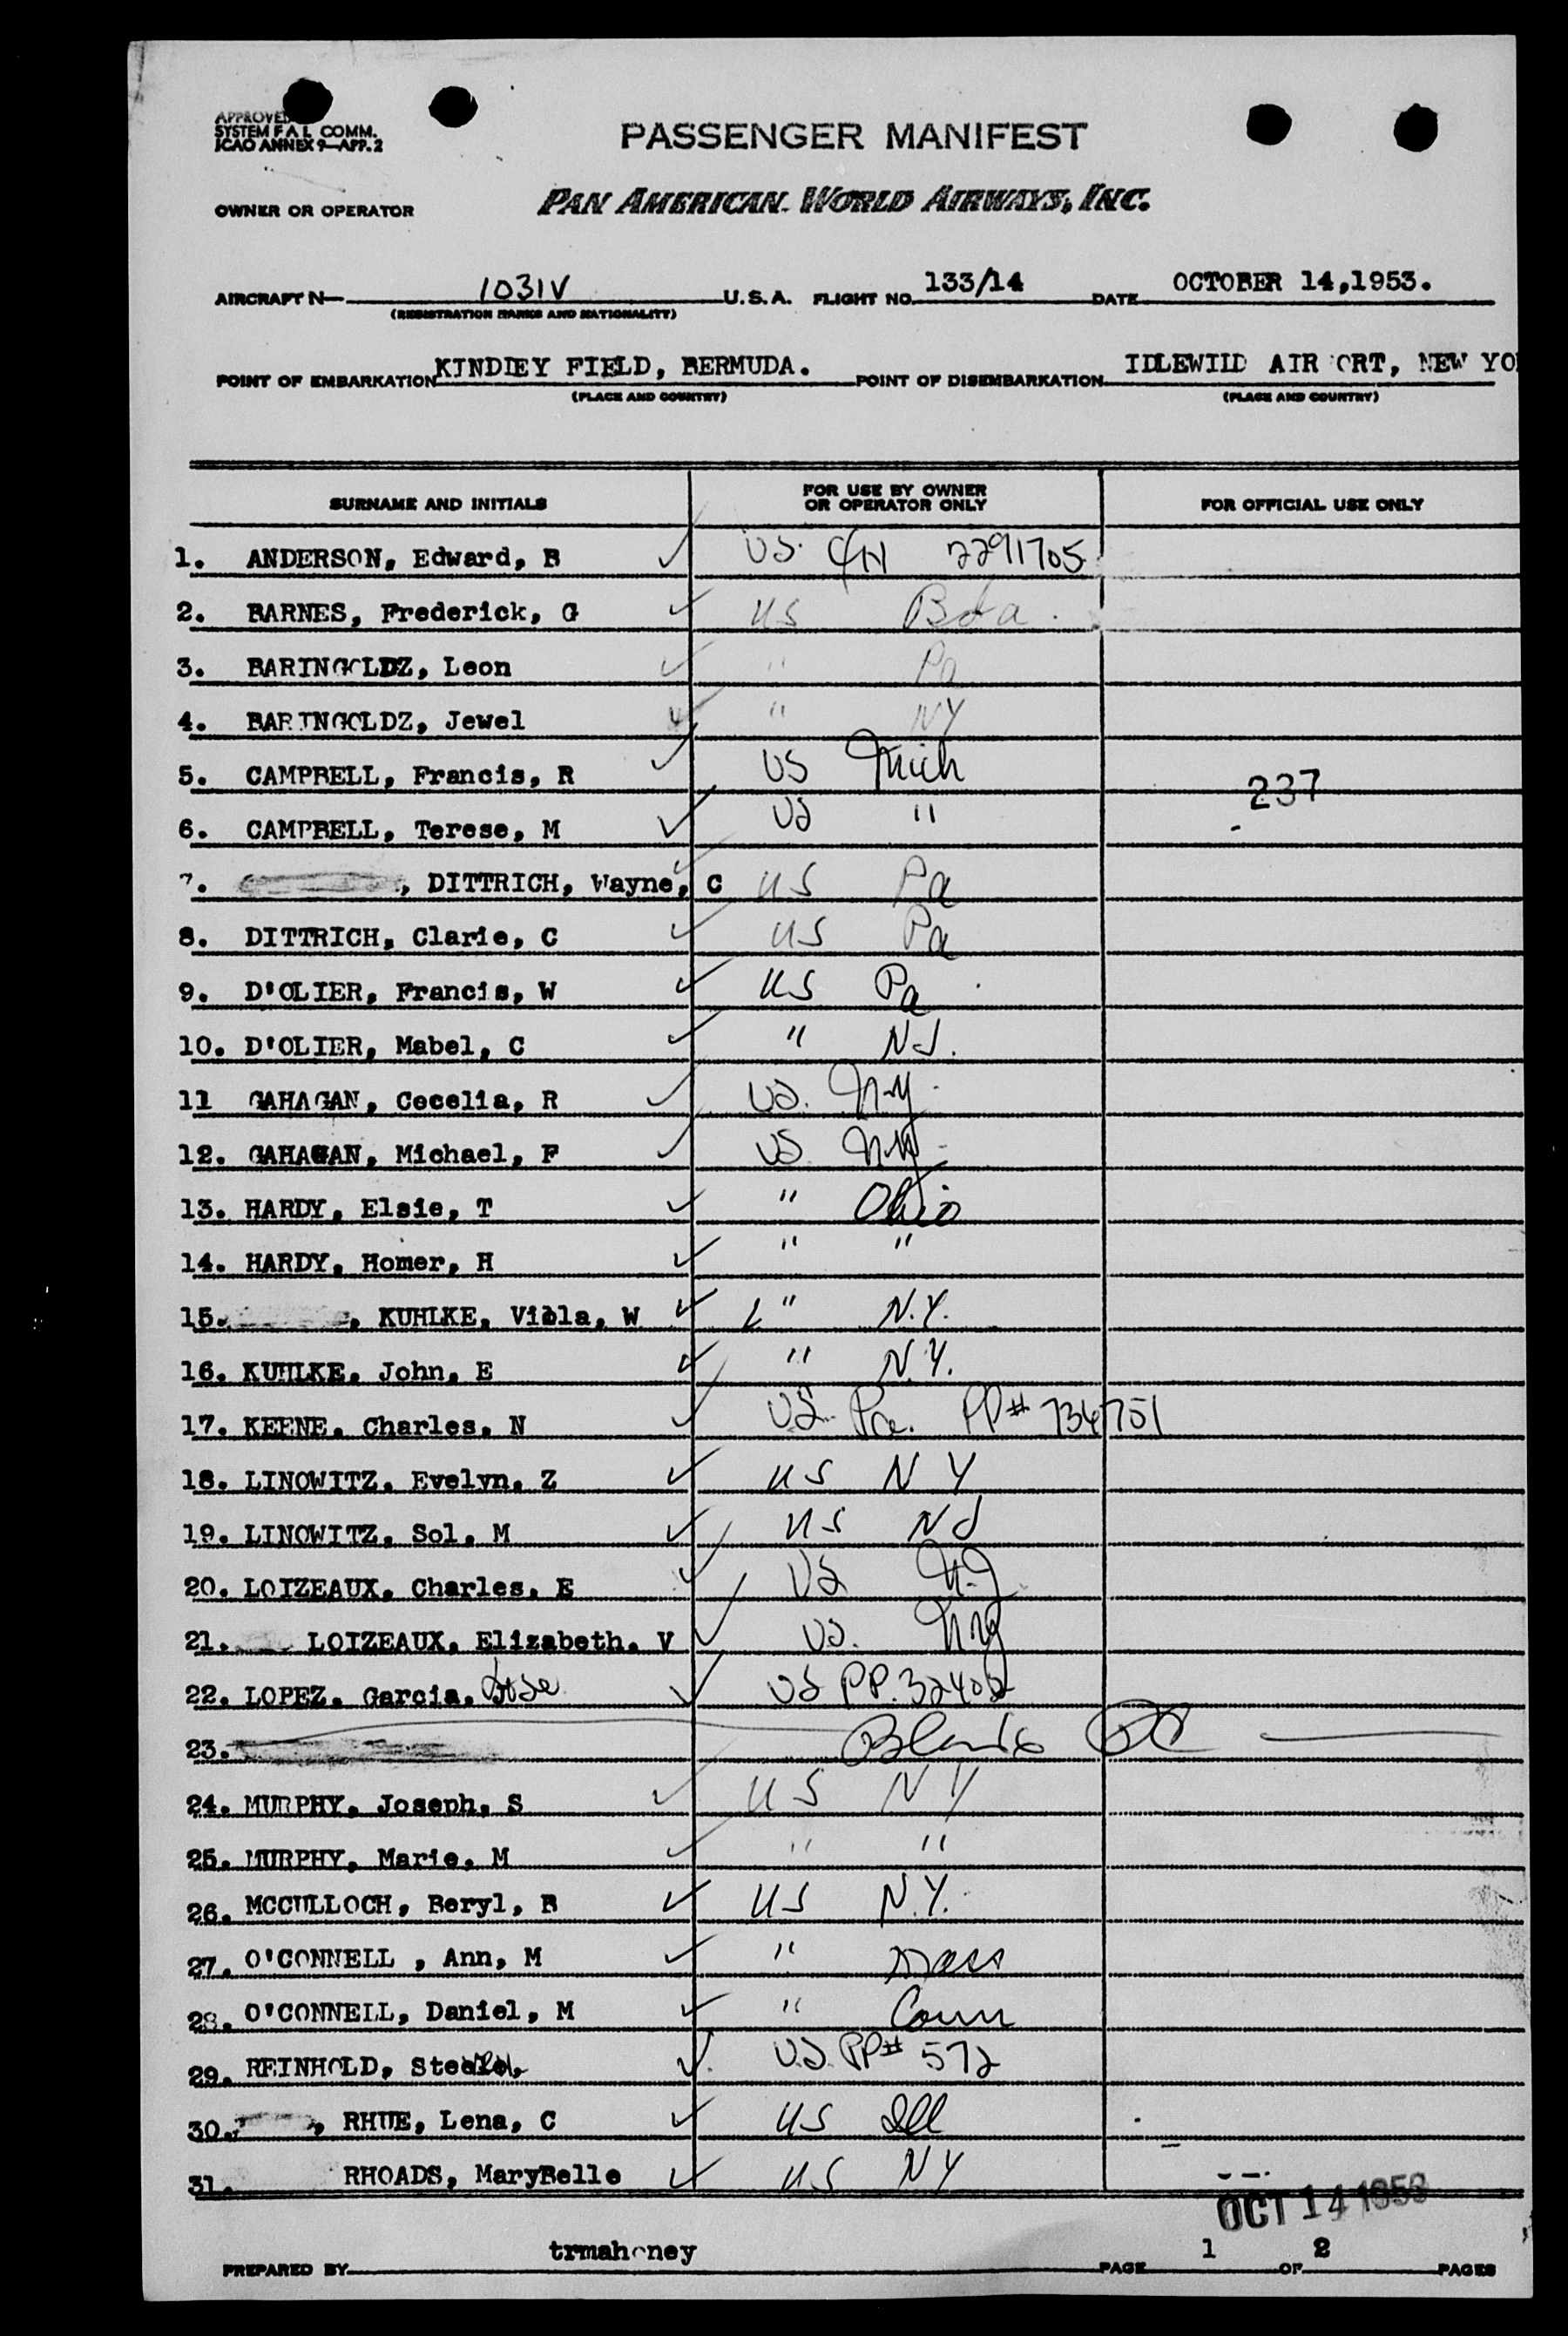 APPROVED
SYSTEM F A L COMM.
ICAO ANNEX 9—APP. 2
PASSENGER MANIFEST
OWNER OR OPERATOR PAN AMERICAN WORLD AIRWAYS, INC.
AIRCRAFT N— 1031V U.S.A. FLIGHT NO. 133/14 DATE OCTOBER 14,1953.
(REGISTRATION MARKS AND NATIONALITY)
POINT OF EMBARKATION KINDLEY FIELD, BERMUDA. POINT OF DISEMBARKATION IDLEWILD AIR ORT, NEW YO
(PLACE AND COUNTRY) (PLACE AND COUNTRY)
SURNAME AND INITIALS FOR USE BY OWNER OR OPERATOR ONLY FOR OFFICIAL USE ONLY
1. ANDERSON, Edward, B ✓ US. C/N 2291705
2. BARNES, Frederick, G ✓ US Bda.
3. BARINGOLDZ, Leon ✓ " Pa
4. BARINGOLDZ, Jewel ✓ " NY
5. CAMPBELL, Francis, R ✓ US Mich
237
6. CAMPBELL, Terese, M ✓ US "
7. , DITTRICH, Wayne, C ✓ US Pa
8. DITTRICH, Clarie, C ✓ US Pa
9. D'OLIER, Francis, W ✓ US Pa
10. D'OLIER, Mabel, C ✓ " NJ.
11 GAHAGAN, Cecelia, R ✓ US. NY
12. GAHAGAN, Michael, F ✓ US NY
13. HARDY, Elsie, T ✓ " Ohio
14. HARDY, Homer, H ✓ " "
15. , KUHLKE, Viola, W ✓ " N.Y.
16. KUHLKE, John, E ✓ " N.Y.
17. KEENE, Charles, N ✓ US Pa. PP# 734751
18. LINOWITZ, Evelyn, Z ✓ US NY
19. LINOWITZ, Sol, M ✓ US NJ
20. LOIZEAUX, Charles, E ✓ US N.J
21. LOIZEAUX, Elizabeth, V ✓ US. NY
22. LOPEZ, Garcia, Jose ✓ US PP.
23. Blank
24. MURPHY, Joseph, S ✓ US NY
25. MURPHY, Marie, M ✓ " "
26. MCCULLOCH, Beryl, B ✓ US N.Y.
27. O'CONNELL , Ann, M ✓ " Mass
28. O'CONNELL, Daniel, M ✓ " Conn
29. REINHOLD, ✓ U.S. PP# 572
30. , RHUE, Lena, C ✓ US Ill
31. RHOADS, MaryBelle ✓ US NY
OCT 14 1953
PREPARED BY trmahoney PAGE 1 OF 2 PAGES